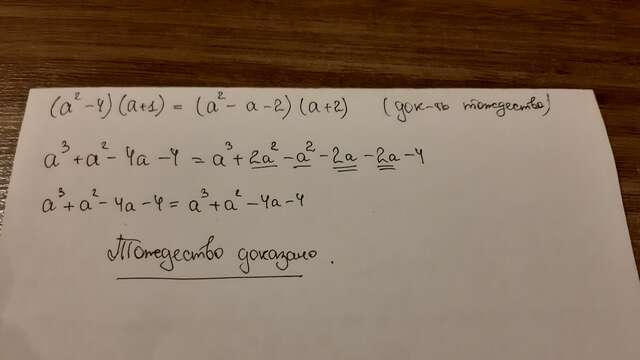 (a² - 4)(a+1) = (a² - a - 2)(a+2) (док-ть тождество)
a³ + a² - 4a - 4 = a³ + 2a² - a² - 2a - 2a - 4
a³ + a² - 4a - 4 = a³ + a² - 4a - 4
Тождество доказано.